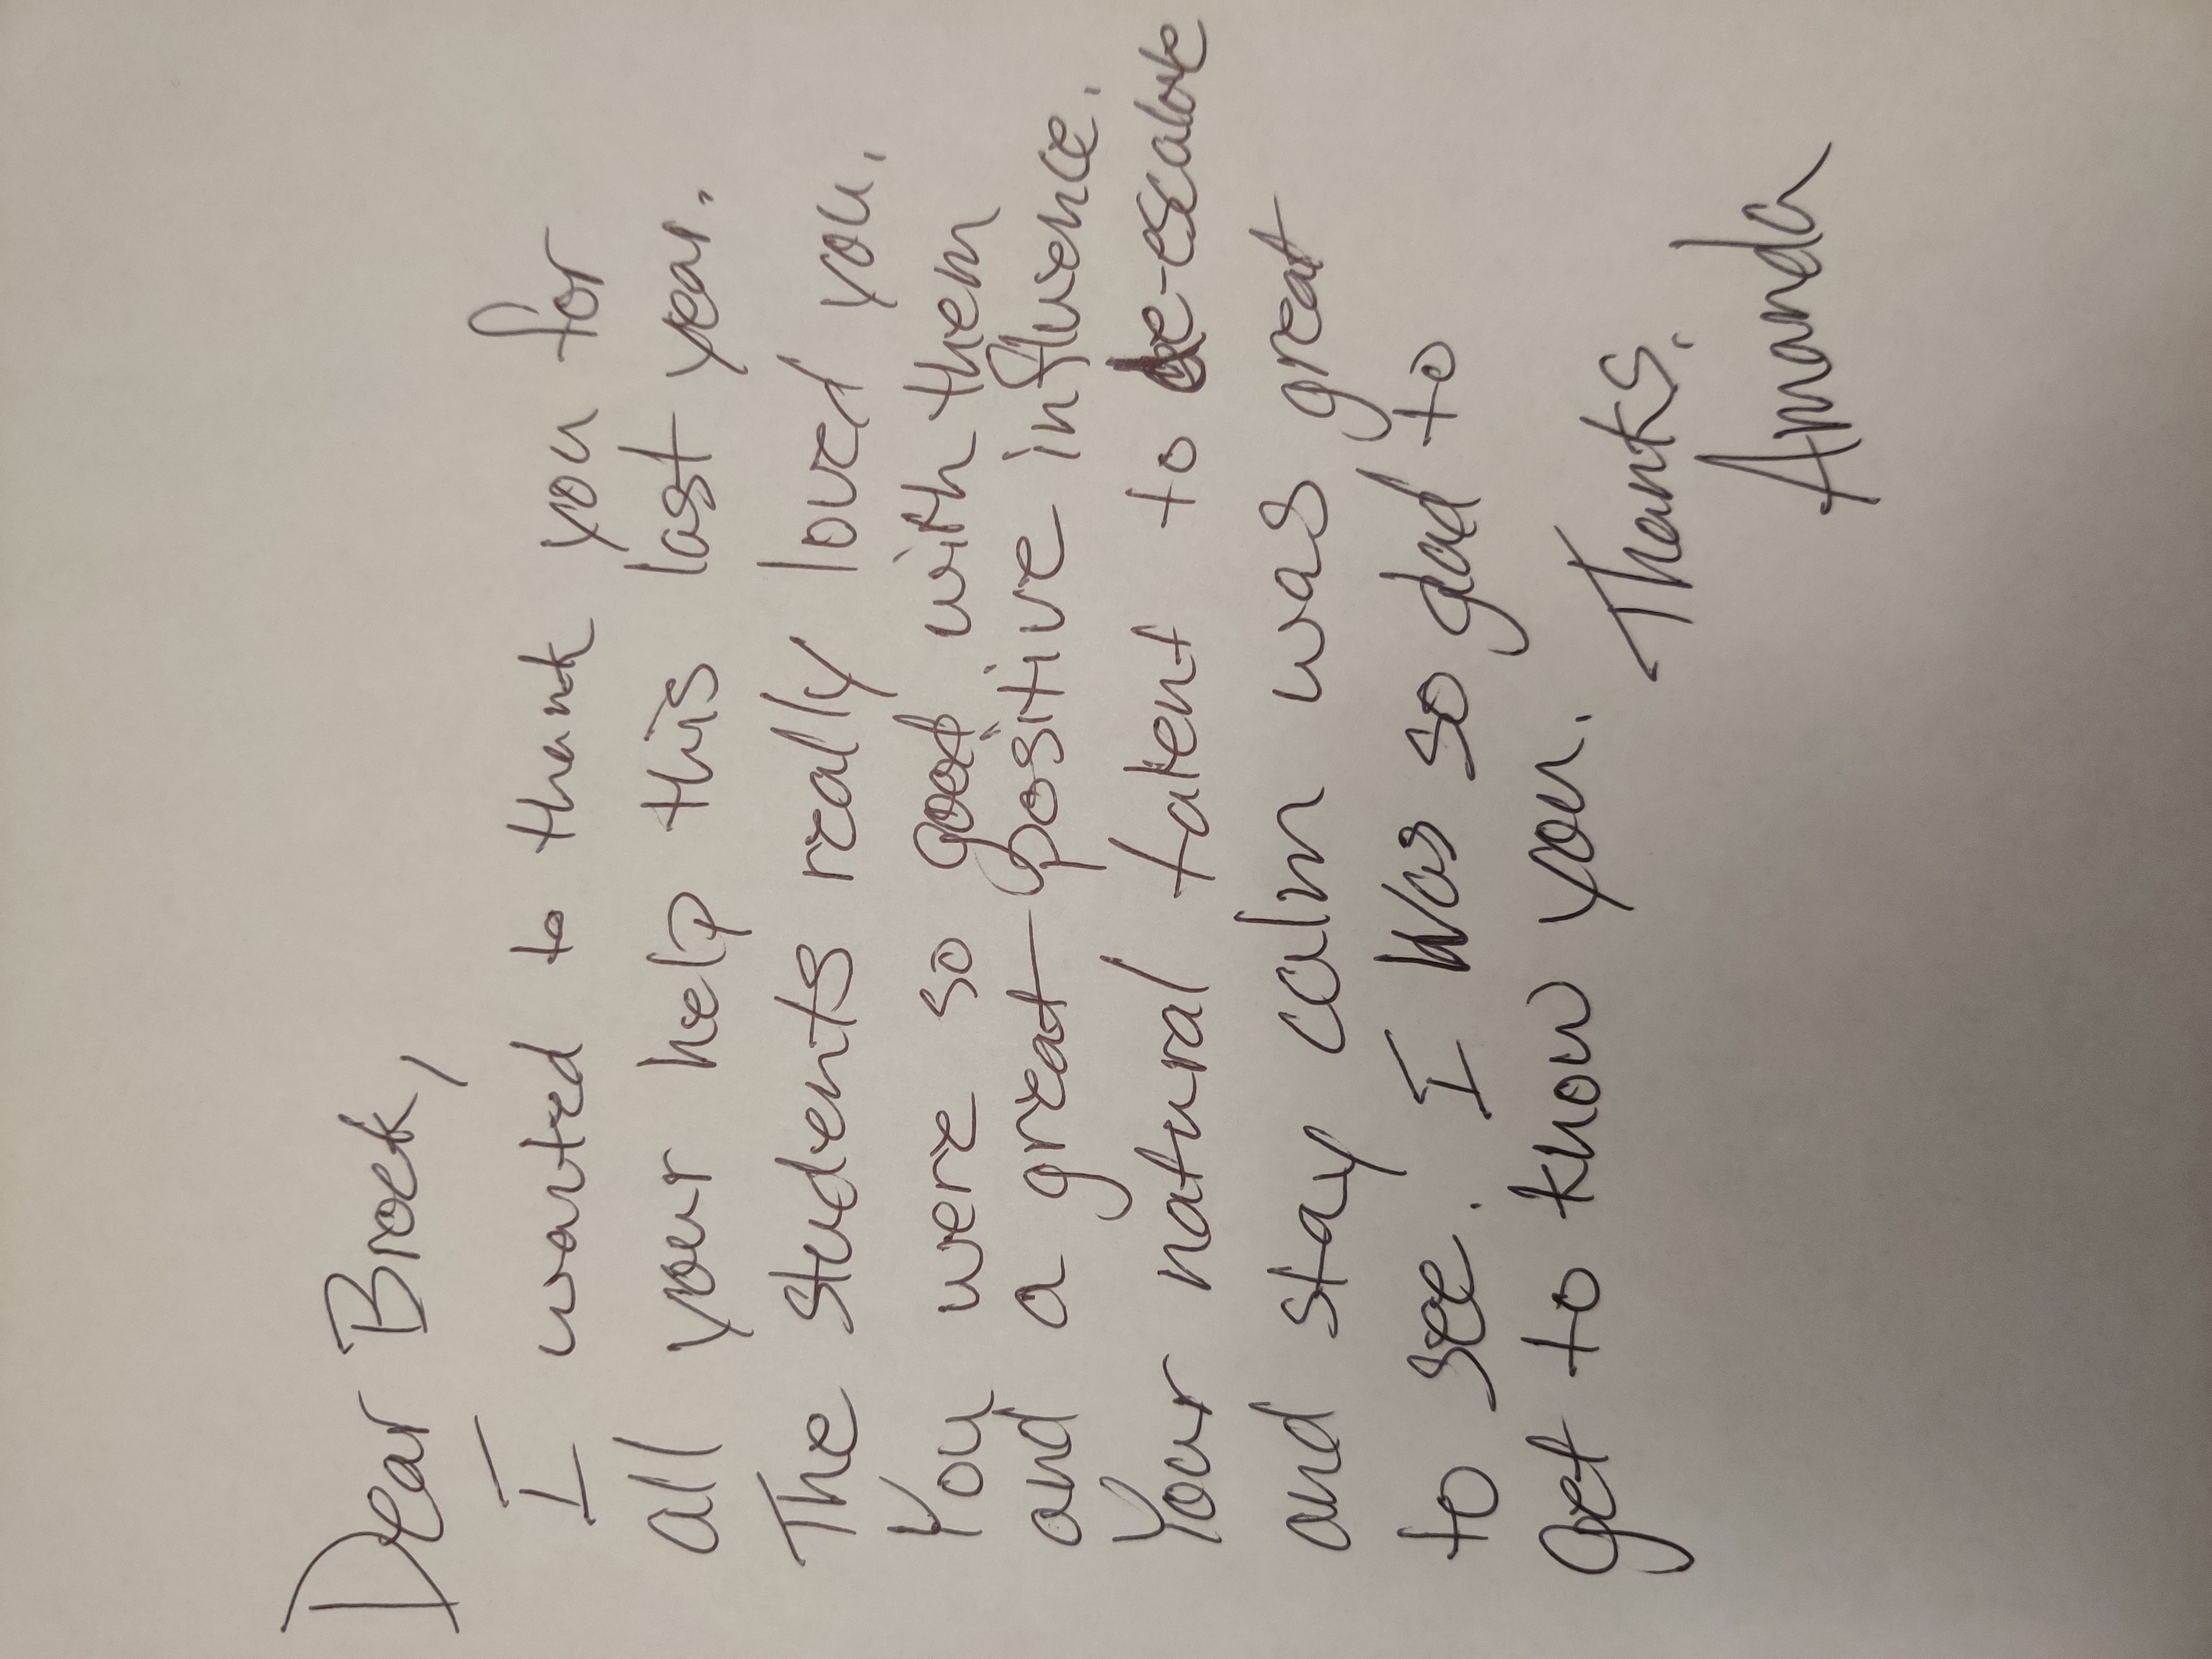 Dear Brock,
I wanted to thank you for
all your help this last year.
The students really loved you.
You were so good with them
and a great positive influence.
Your natural talent to de-escalate
and stay calm was great
to see. I was so glad to
get to know you.
Thanks,
Amanda